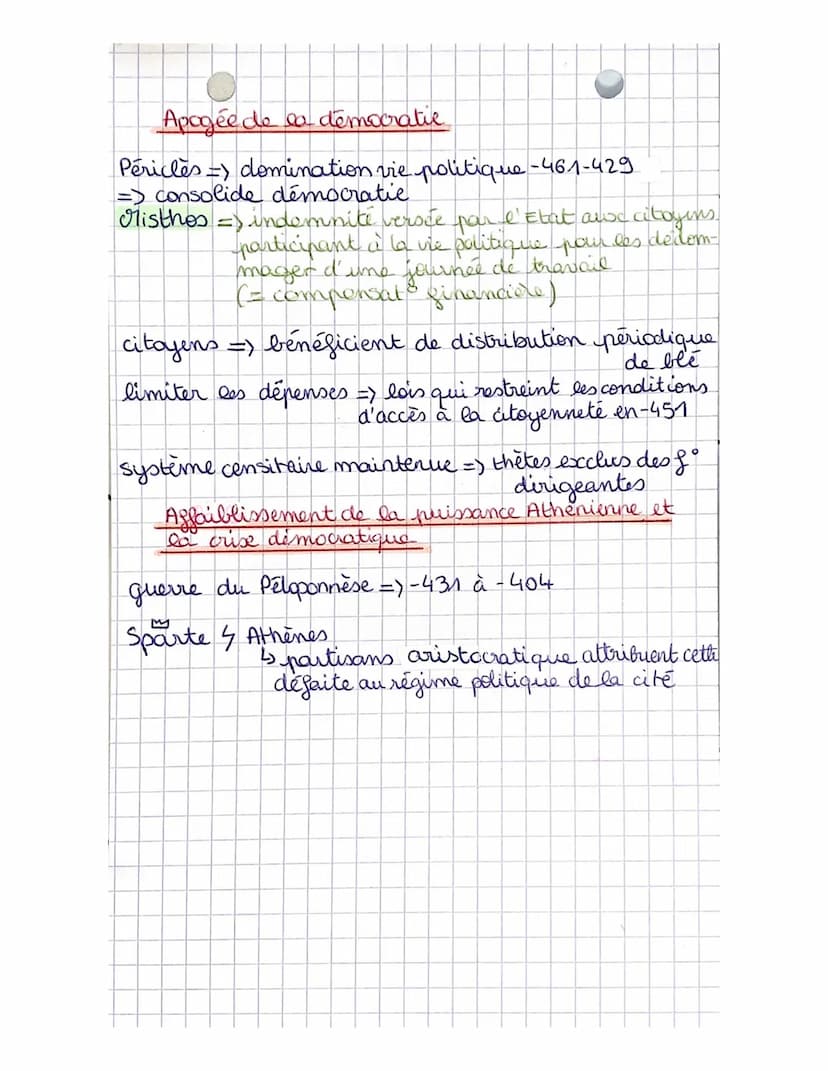 Apogée de la démocratie
Périclès => domination vie politique -461-429
=> consolide démocratie
Misthos => indemnité versée par l'Etat aux citoyens
participant à la vie politique pour les dédom-
mager d'une journée de travail
(= compensat° financière)
citoyens => bénéficient de distribution périodique
de blé
limiter les dépenses => lois qui restreint les conditions
d'accès à la citoyenneté en -451
système censitaire maintenue => thètes exclus des f°
dirigeantes
Affaiblissement de la puissance Athénienne et
la crise démocratique
guerre du Péloponnèse => -431 à -404
Sparte ↯ Athènes
↳ partisans aristocratique attribuent cette
défaite au régime politique de la cité